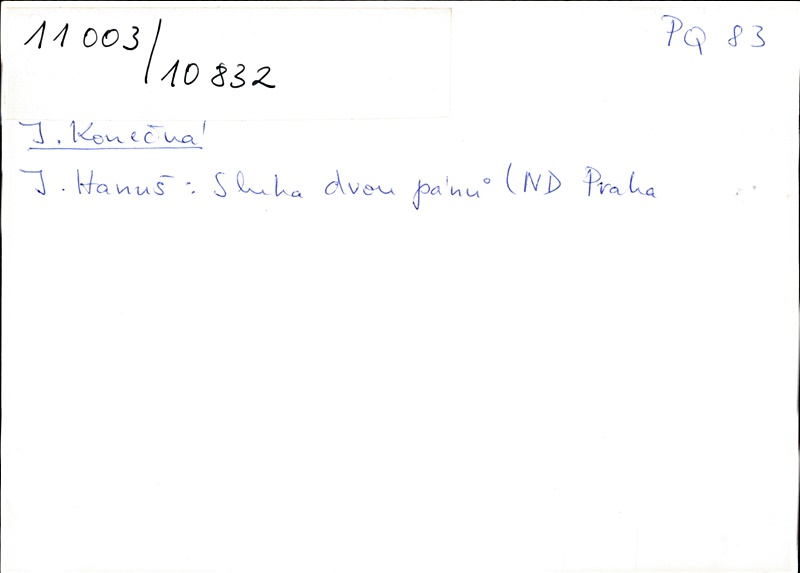 11 003/10 832
PQ 83
J. Konečná
J. Hanuš: Sluha dvou pánů (ND Praha